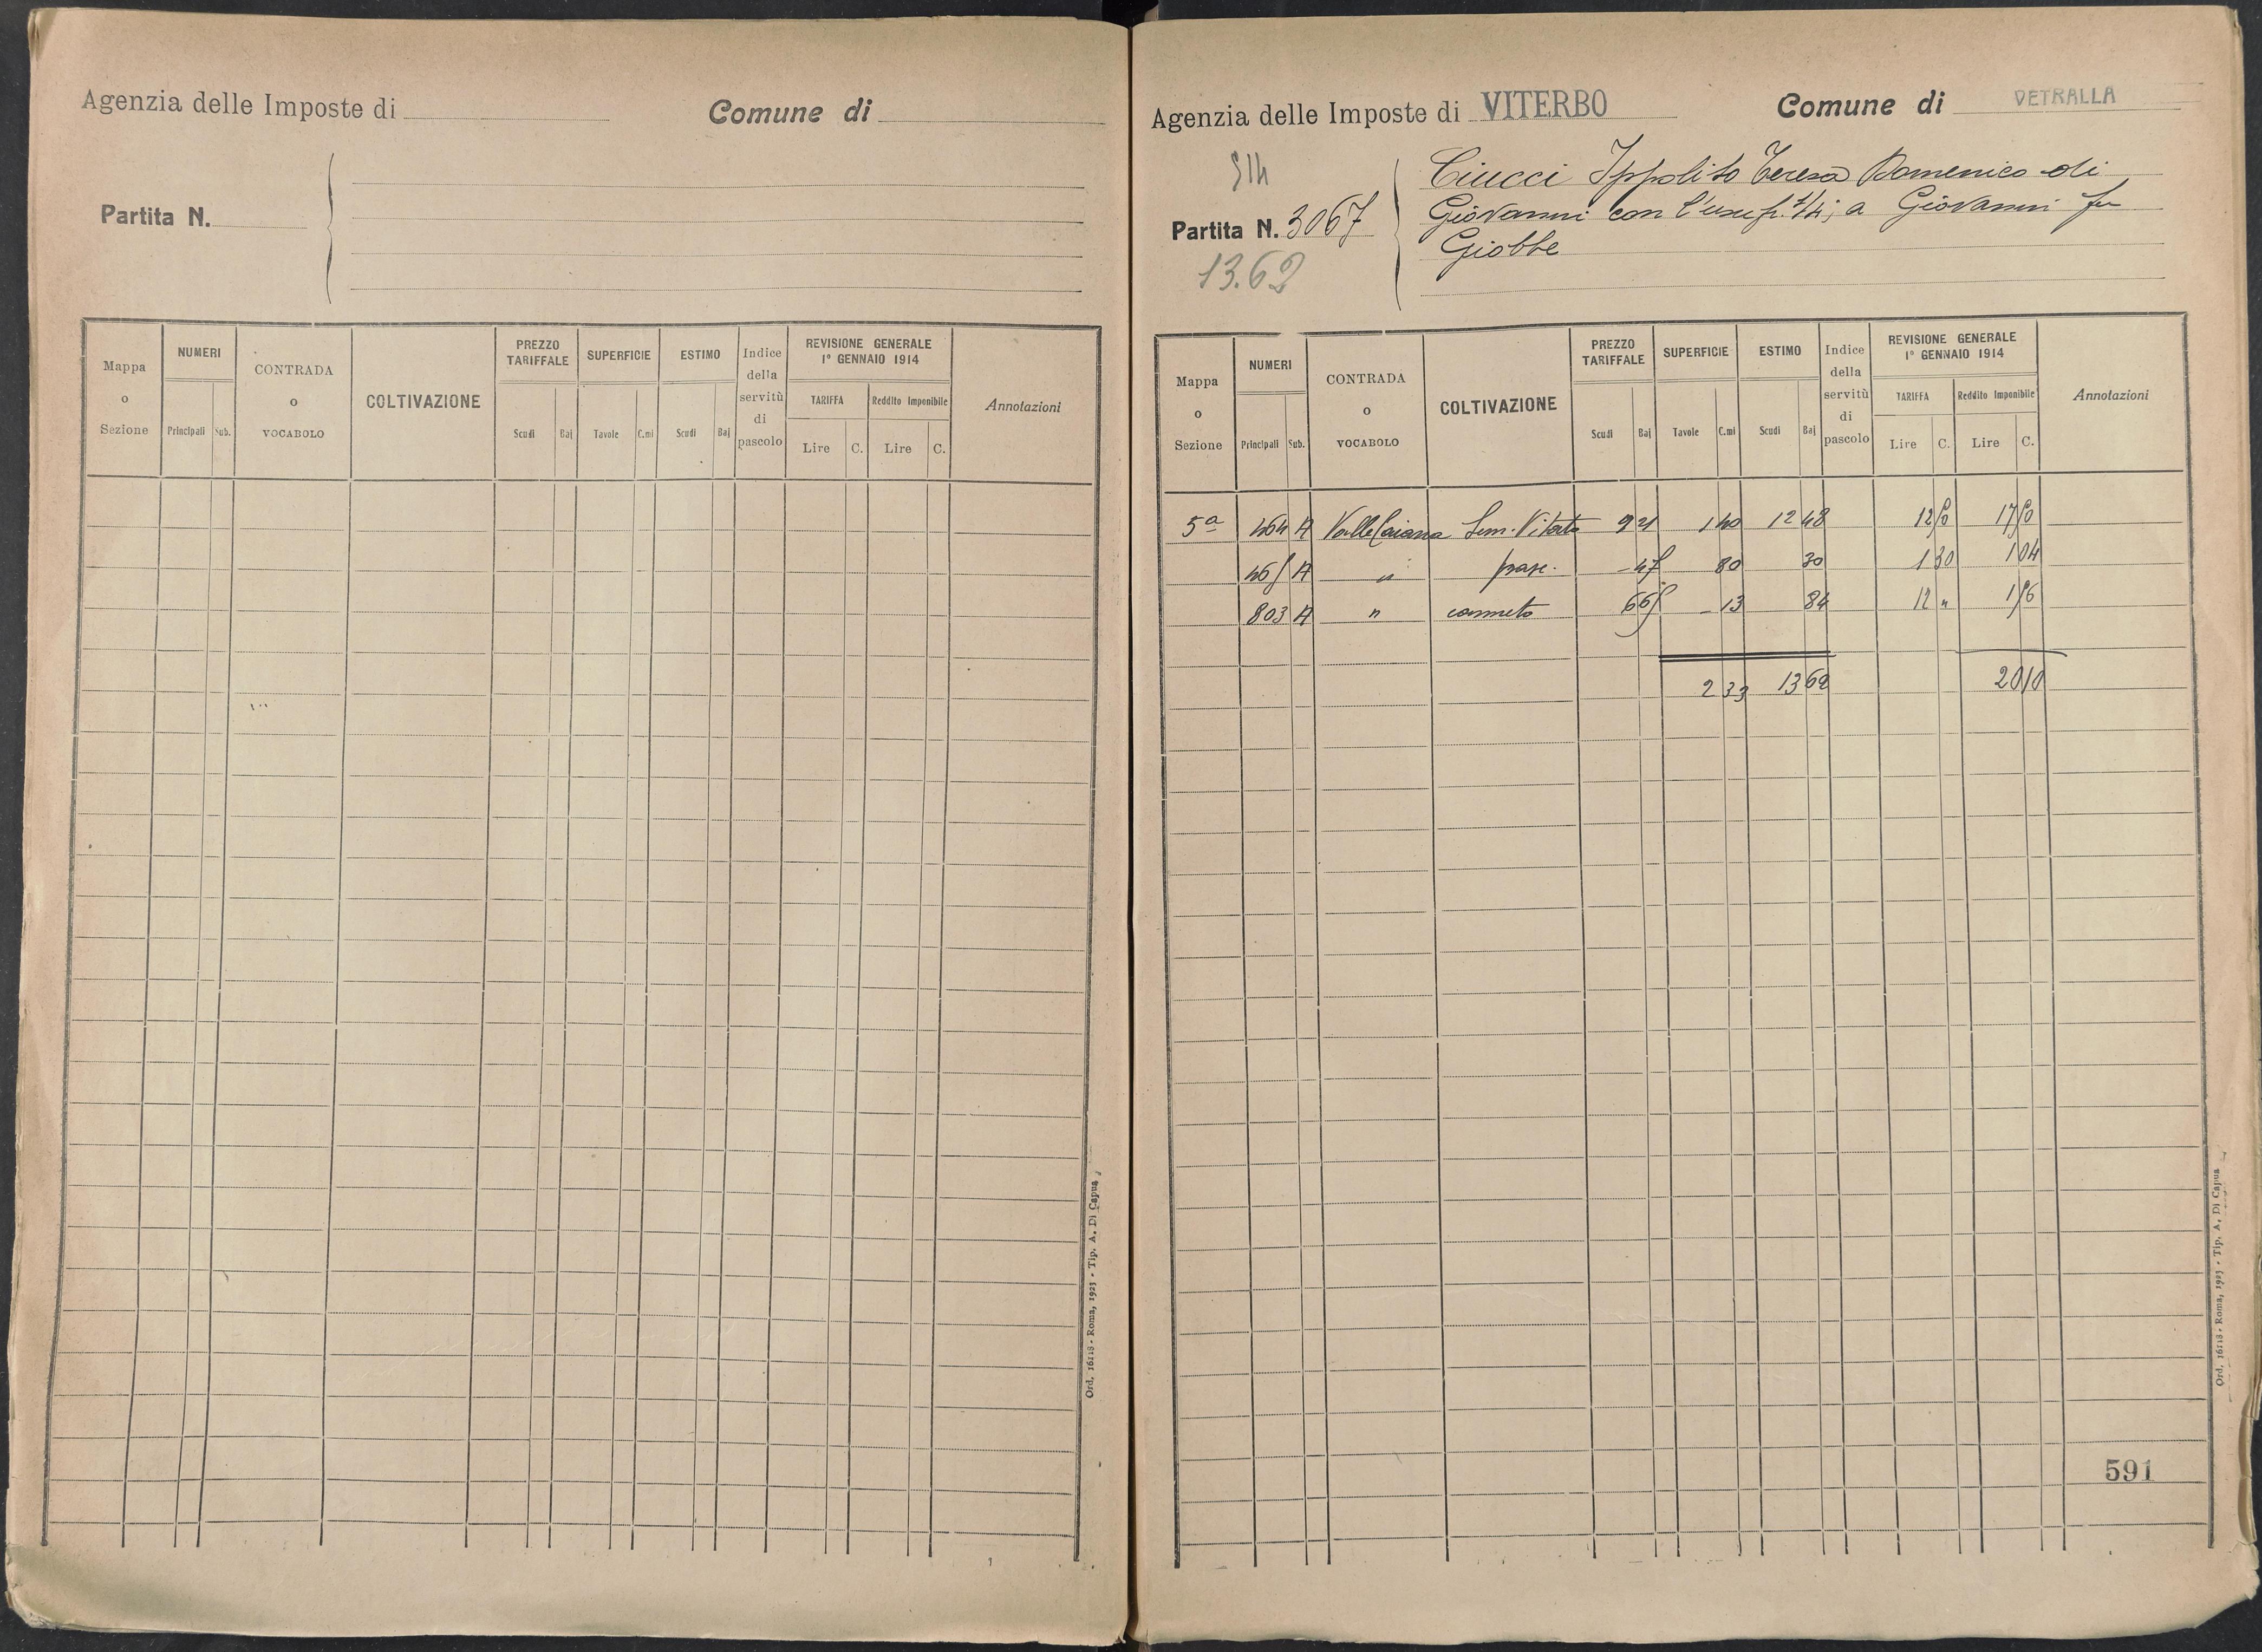 Agenzia delle Imposte di
Comune di
Partita N.
Mappa o Sezione
NUMERI
Principali Sub.
CONTRADA o VOCABOLO
COLTIVAZIONE
PREZZO TARIFFALE
Scudi Baj
SUPERFICIE
Tavole C.mi
ESTIMO
Scudi Baj
Indice della servitù di pascolo
REVISIONE GENERALE
1° GENNAIO 1914
TARIFFA Reddito Imponibile
Lire C. Lire C.
Annotazioni
Ord. 16118 - Roma, 1923 - Tip. A. Di Capua
Agenzia delle Imposte di VITERBO
Comune di VETRALLA
Partita N. 3067
13.62
Ciucci Ippolito Teresa Domenico di
Giovanni con l'usufr. 1/4; a Giovanni fu
Giobbe
Mappa o Sezione
NUMERI
Principali Sub.
CONTRADA o VOCABOLO
COLTIVAZIONE
PREZZO TARIFFALE
Scudi Baj
SUPERFICIE
Tavole C.mi
ESTIMO
Scudi Baj
Indice della servitù di pascolo
REVISIONE GENERALE
1° GENNAIO 1914
TARIFFA Reddito Imponibile
Lire C. Lire C.
Annotazioni
5a 464 A Valle Caiana Sem. Vitato 9 21 1 40 12 48 12 50 17 50
465 A " pasc. - 47 80 30 1 30 1 04
803 A " canneto 6 65 - 13 84 12 " 1 56
2 33 13 62 20 10
591
Ord. 16118 - Roma, 1923 - Tip. A. Di Capua